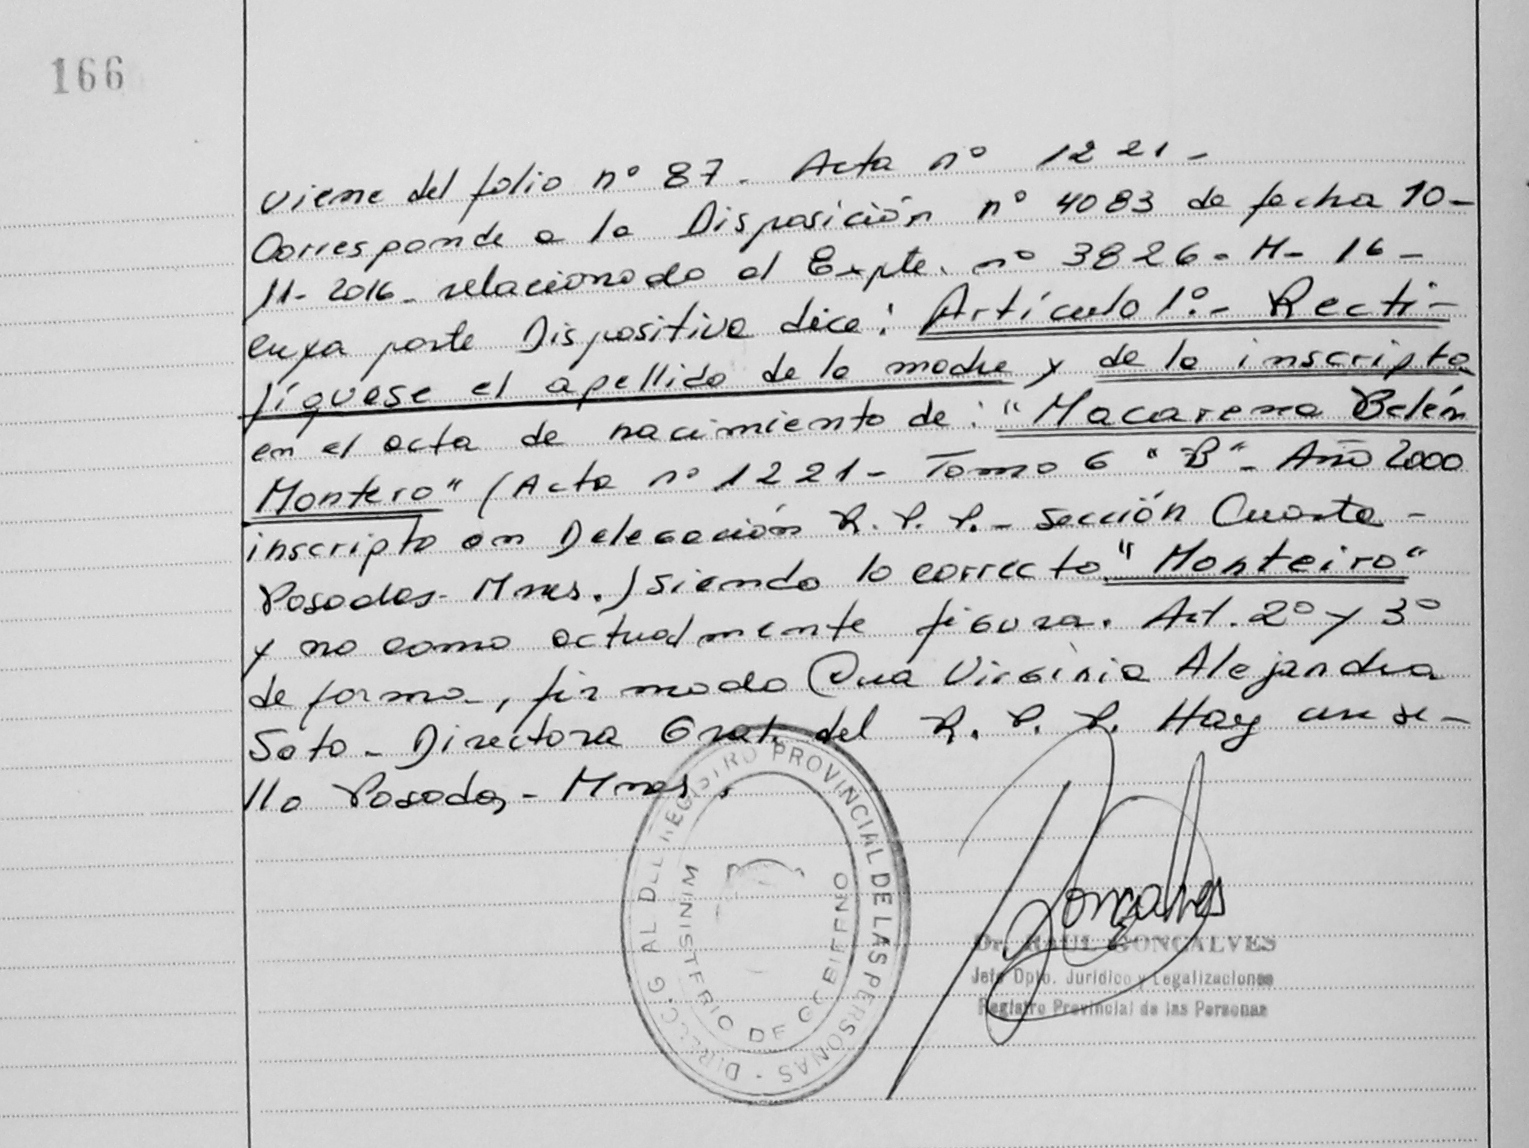 166
Viene del folio nº 87. Acta nº 1221-
Corresponde a la Disposición nº 4083 de fecha 10-
11-2016- relacionado al Expte. nº 3826-M-16-
cuya parte Dispositiva dice: Artículo 1º.- Recti-
fíquese el apellido de la madre y de la inscripta
en el acta de nacimiento de: "Macarena Belén
Montero" (Acta nº 1221- Tomo 6 "B"- Año 2000
inscripta en Delegación R.P.P.- Sección Cuarta-
Posadas- Mnes.) siendo lo correcto "Monteiro"
y no como actualmente figura. Art. 2º y 3º
de forma, firmado Dra Virginia Alejandra
Soto- Directora Gral. del R.P.P. Hay un se-
llo Posadas- Mnes.
DIRECC. G AL DEL REGISTRO PROVINCIAL DE LAS PERSONAS -
MINISTERIO DE GOBIERNO
Goncalves
Dr. RAUL GONCALVES
Jefe Dpto. Jurídico y Legalizaciones
Registro Provincial de las Personas